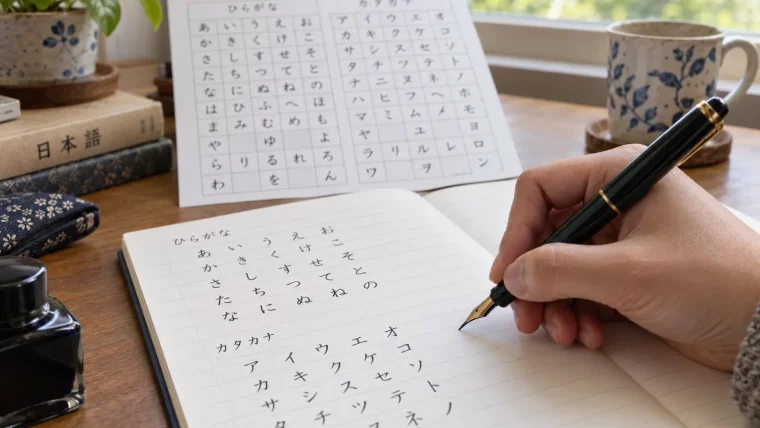 ひらがな
あ い う え お
か き く け こ
さ し す せ そ
た ち つ て と
な に ぬ ね の
は ひ ふ へ ほ
ま み む め も
や ゆ よ
ら り る れ ろ
わ を ん
カタカナ
ア イ ウ エ オ
カ キ ク ケ コ
サ シ ス セ ソ
タ チ ツ テ ト
ナ ニ ヌ ネ ノ
ハ ヒ フ ヘ ホ
マ ミ ム メ モ
ヤ ユ ヨ
ラ リ ル レ ロ
ワ ヲ ン
日本語
ひらがな
あ い う え お
か き く け こ
さ し す せ そ
た ち つ て と
な に ぬ ね の
カタカナ
ア イ ウ エ オ
カ キ ク ケ コ
サ シ ス セ ソ
タ チ ツ テ ト
ネ ノ